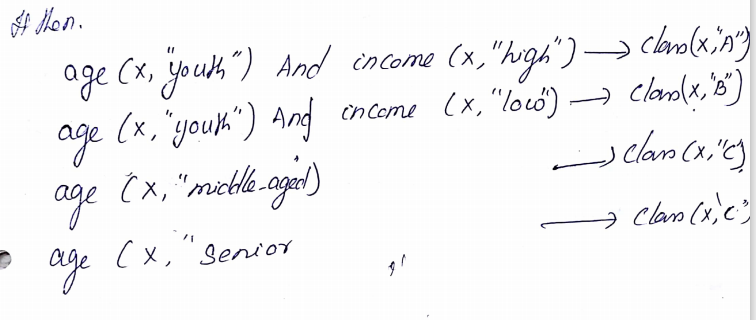 If then.
age (x, "youth") And income (x, "high") → class(x, "A")
age (x, "youth") And income (x, "low") → class(x, "B")
age (x, "middle-aged) → class (x, "C")
age (x, "senior → class (x, 'c'